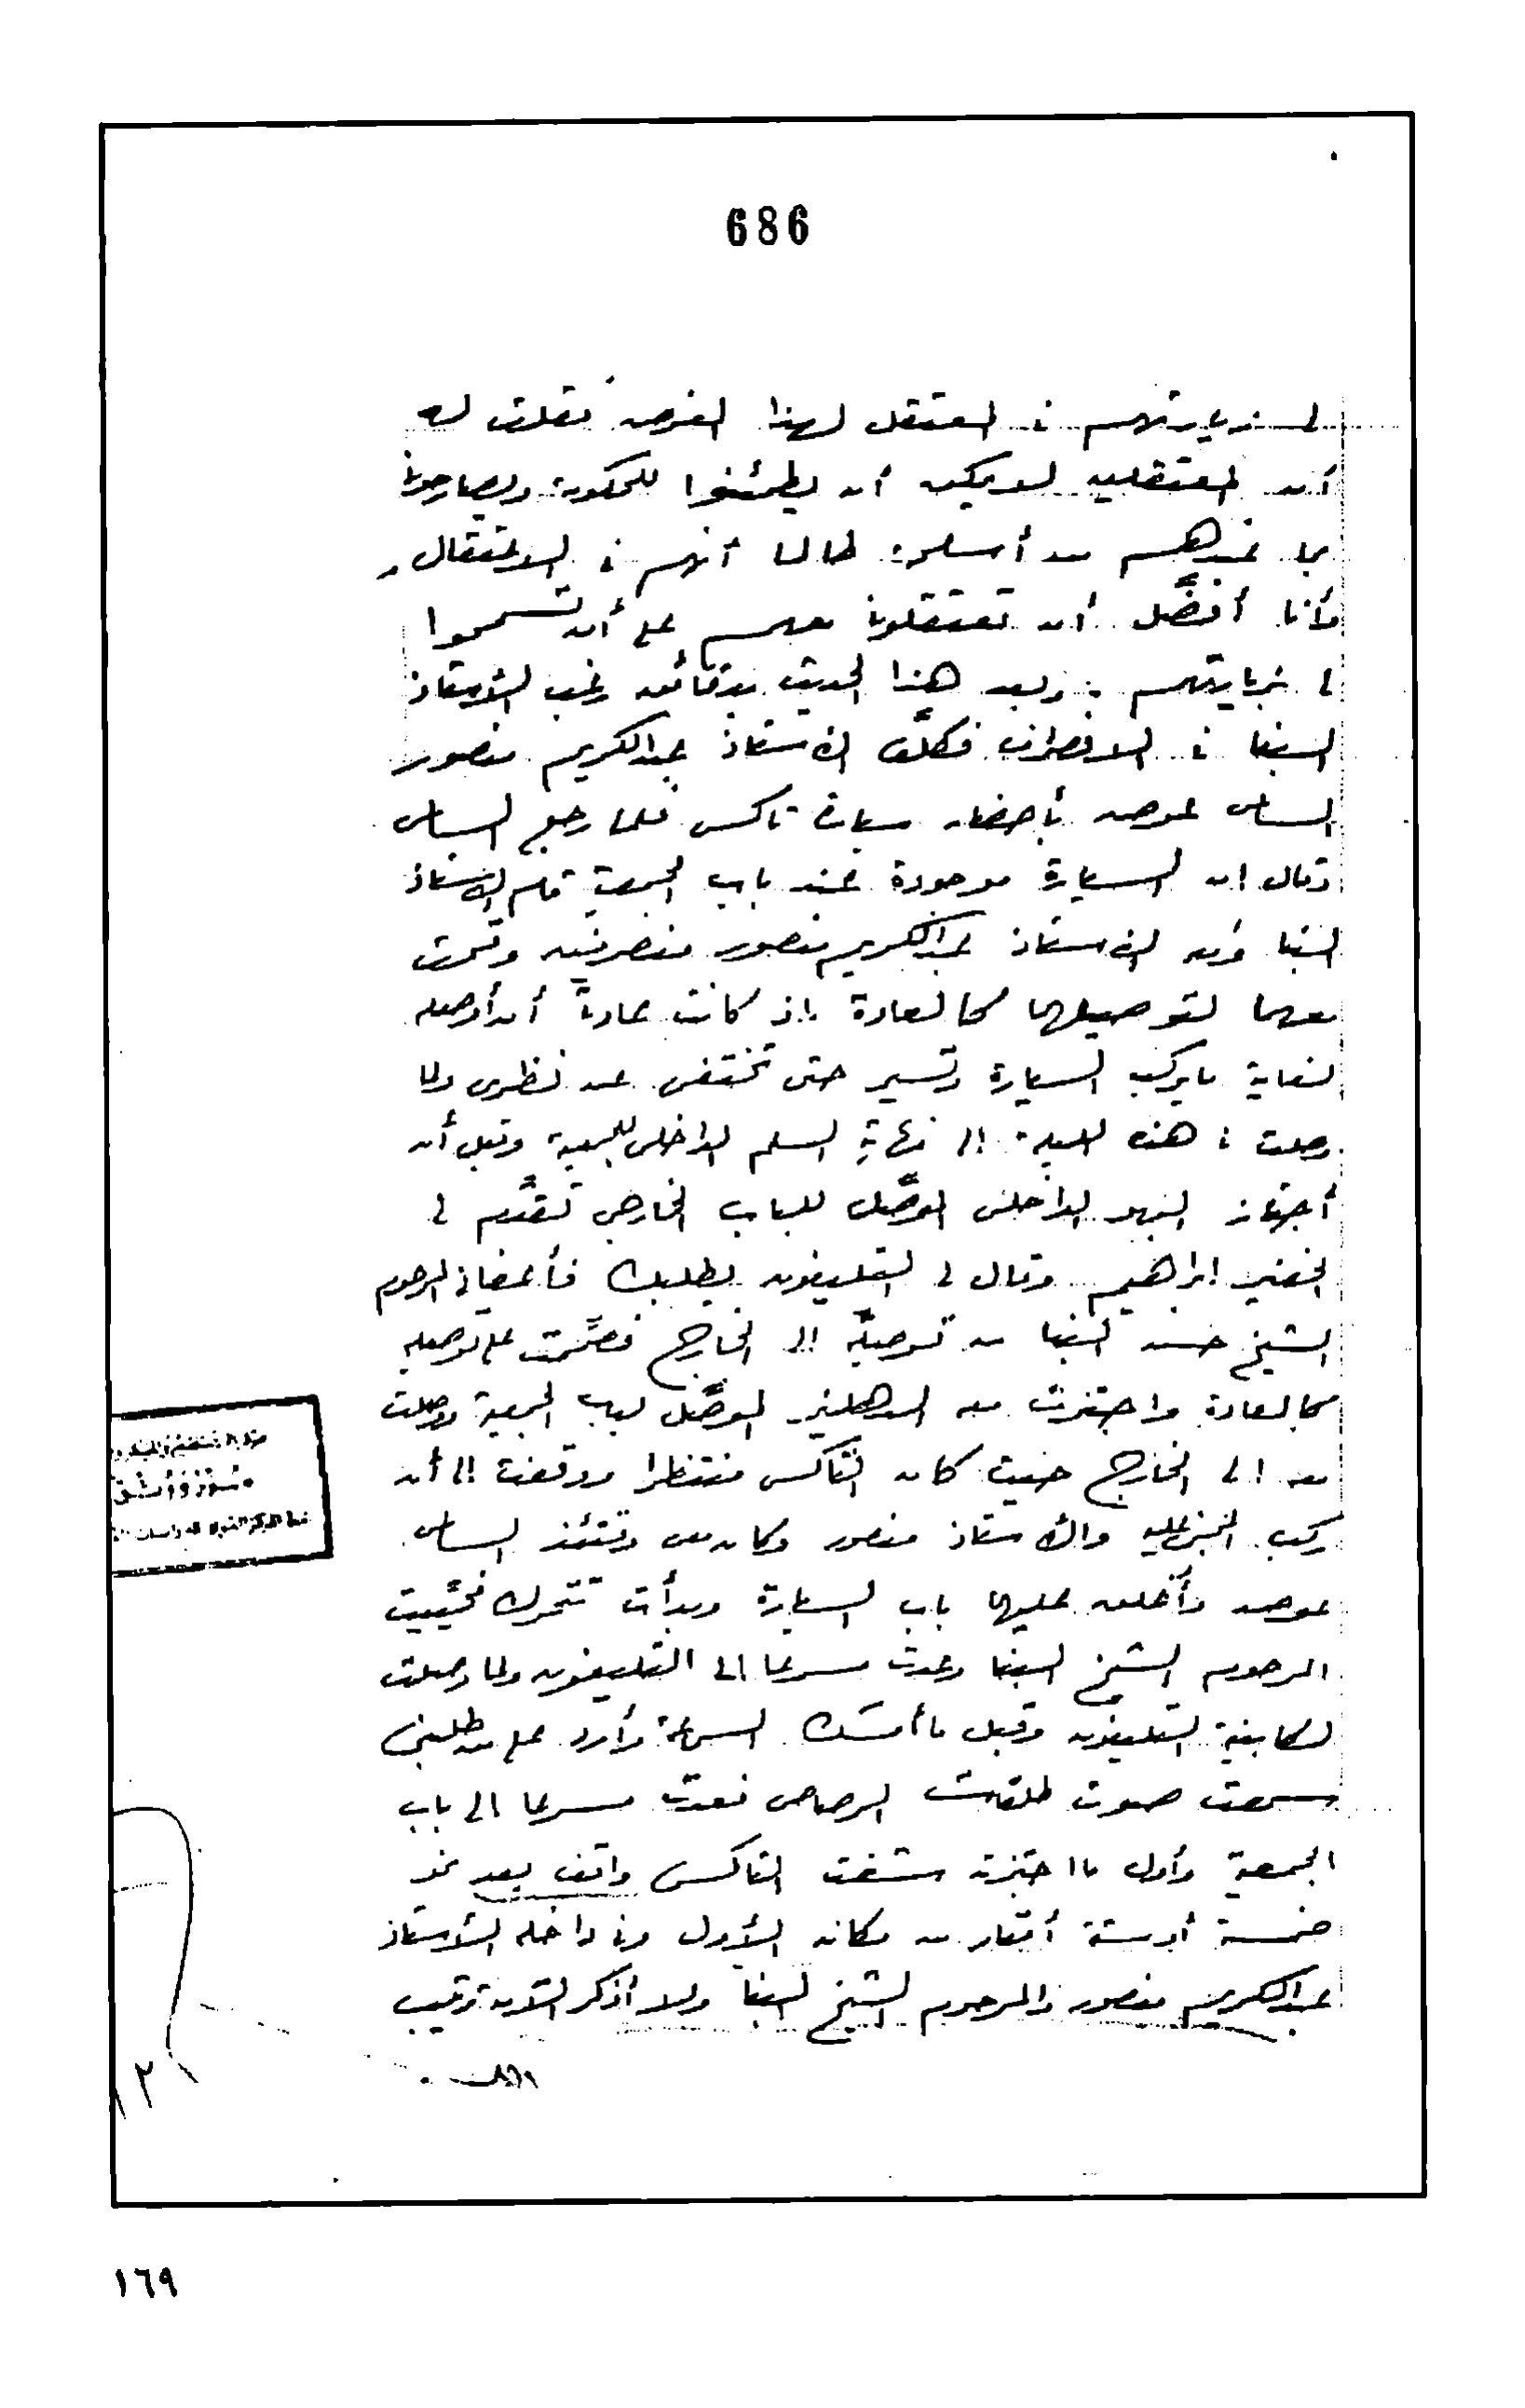 686
لى بزيارتهم فى المعتقل لهذا الغرض فقلت له
أن المعتقلين لا يمكن أن يطمئنوا للحكومة ويصارحونا
بما عندهم من أسلحة طالما أنهم فى الاعتقال
وأنا أفضّل أن تعتقلونا معهم على أن تسمحوا
لى بزيارتهم وبعد هذا الحديث بدقائق رغب الأستاذ
البنا فى الانصراف فكلّف الأستاذ عبدالكريم منصور
الساعى محمد بأحضار سيارة تاكس فلما رجع الساعى
وقال ان السيارة موجودة عند باب الجمعية قام الأستاذ
البنا والأستاذ عبدالكريم منصور منصرفين وقمت
معهما لتوصيلهما كالعادة إذ كانت عادتى أن أوصله
لغاية ما يركب السيارة وتسير حتى تختفى عن نظرى ولما
وصلت فى هذه الليلة الى نهاية السلم الداخلى للجمعية وقبل أن
أجتاز البهو الداخلى الموصّل للباب الخارجى تقدّم لى
الخفير ابراهيم وقال لى التليفون يطلبك فأعفانى المرحوم
الشيخ حسن البنا من توصيله الى الخارج فصمّمت على توصيله
كالعادة واجتزت معه الدهليز الموصّل لباب الجمعية ووصلت
معه الى الخارج حيث كان التاكس منتظرا ووقفت الى أن
ركب المجنى عليه والأستاذ منصور وكان معى وقتئذ الساعى
محمد وأغلق عليهما باب السيارة وبدأت تتحرك فحييت
المرحوم الشيخ البنا وعدت مسرعا الى التليفون ولما وصلت
لكابينة التليفون وقبل ما أمسك السماعة وأرد على من طلبنى
سمعت صوت طلقات الرصاص فعدت مسرعا الى باب
الجمعية وأول ما اجتزته شفت التاكسى واقف بعد نحو
خمسة أو ستة أمتار من مكانه الأول وفى داخله الأستاذ
عبدالكريم منصور والمرحوم الشيخ البنا ولا أذكر الآن ترتيب
١٦٩